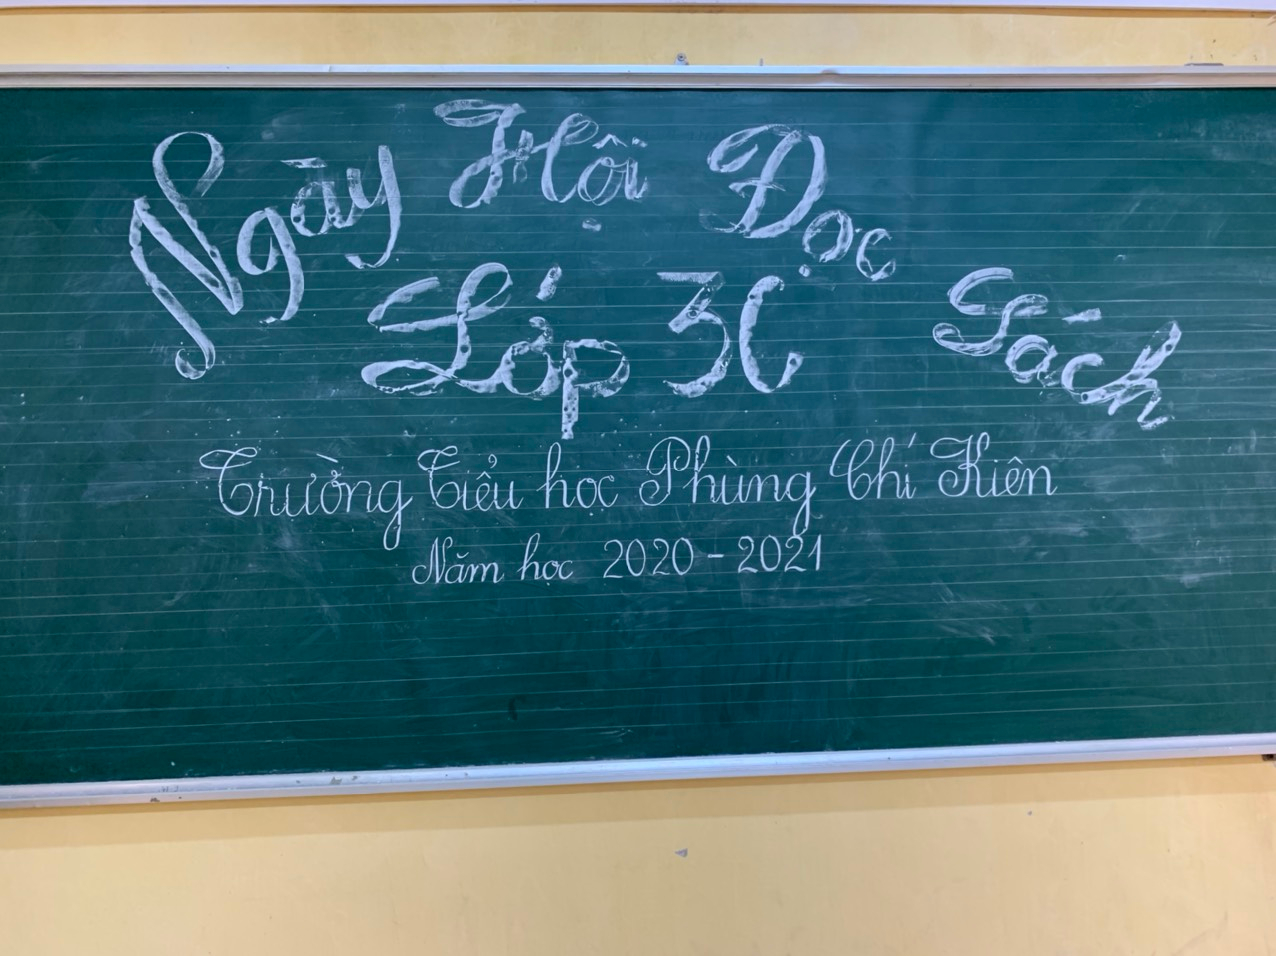 Ngày Hội Đọc Sách
Lớp 3C
Trường Tiểu học Phùng Chí Kiên
Năm học 2020 - 2021